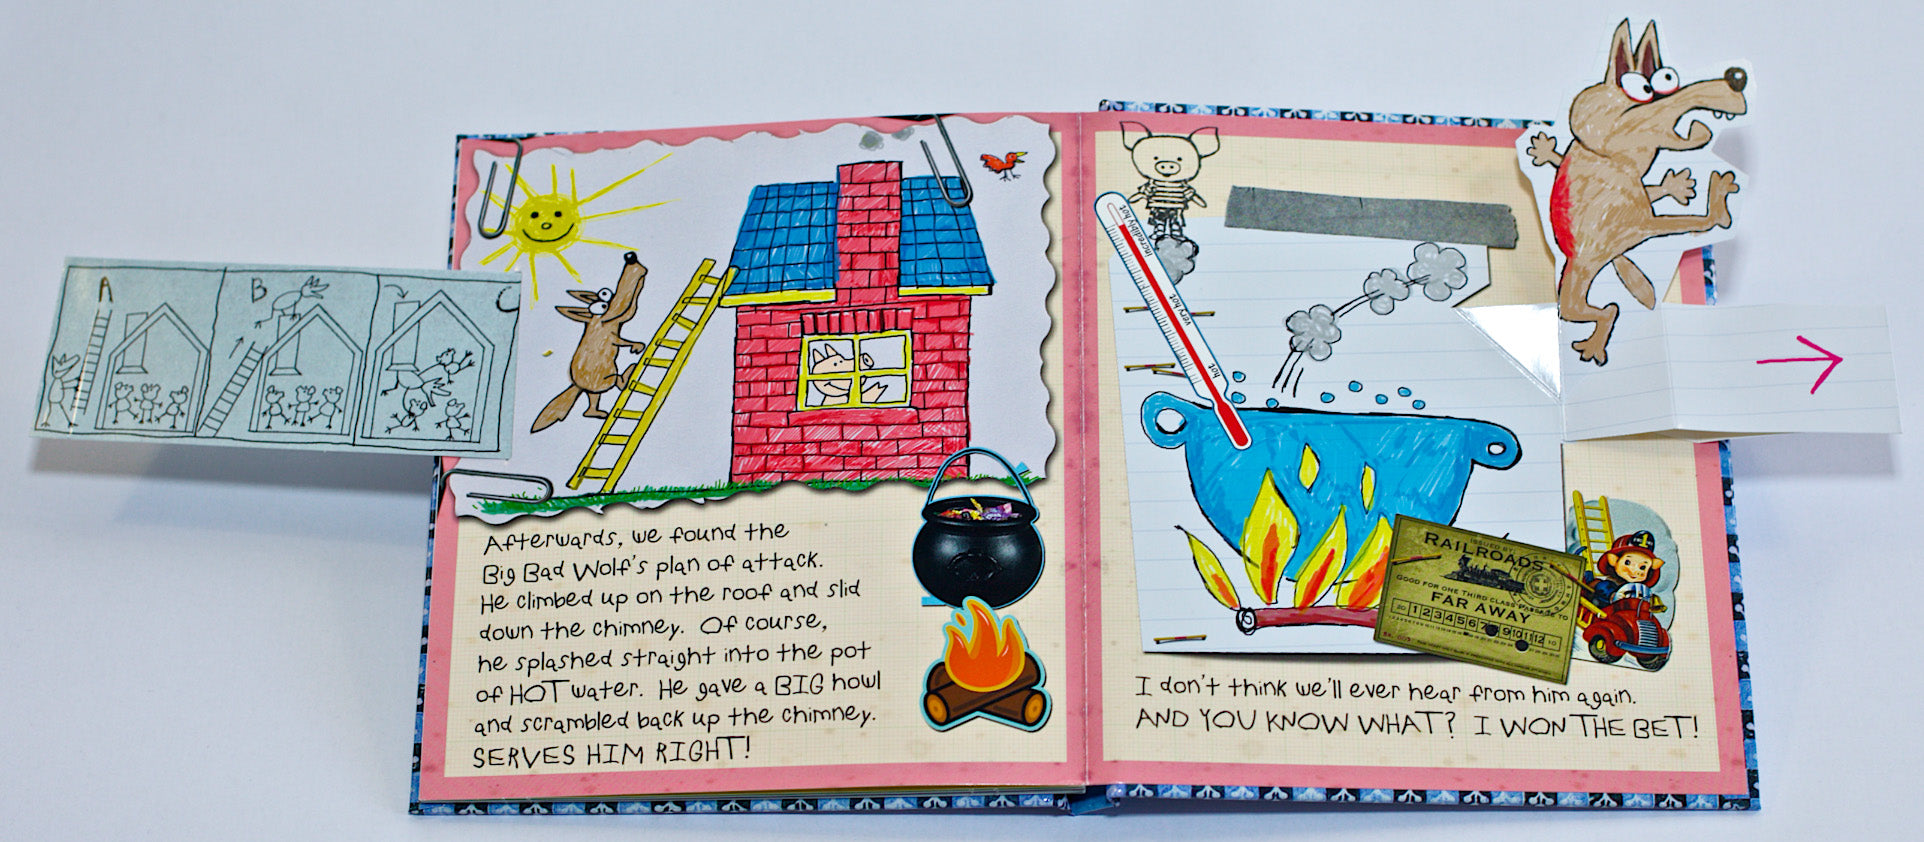 A
B
C
Afterwards, we found the
Big Bad Wolf's plan of attack.
He climbed up on the roof and slid
down the chimney. Of course,
he splashed straight into the pot
of HOT water. He gave a BIG howl
and scrambled back up the chimney.
SERVES HIM RIGHT!
Incredibly hot
very hot
hot
ISSUED BY
RAILROADS
GOOD FOR ONE THIRD CLASS PASSAGE TO
FAR AWAY
1 2 3 4 5 6 7 9 10 11 12
1
I don't think we'll ever hear from him again.
AND YOU KNOW WHAT? I WON THE BET!